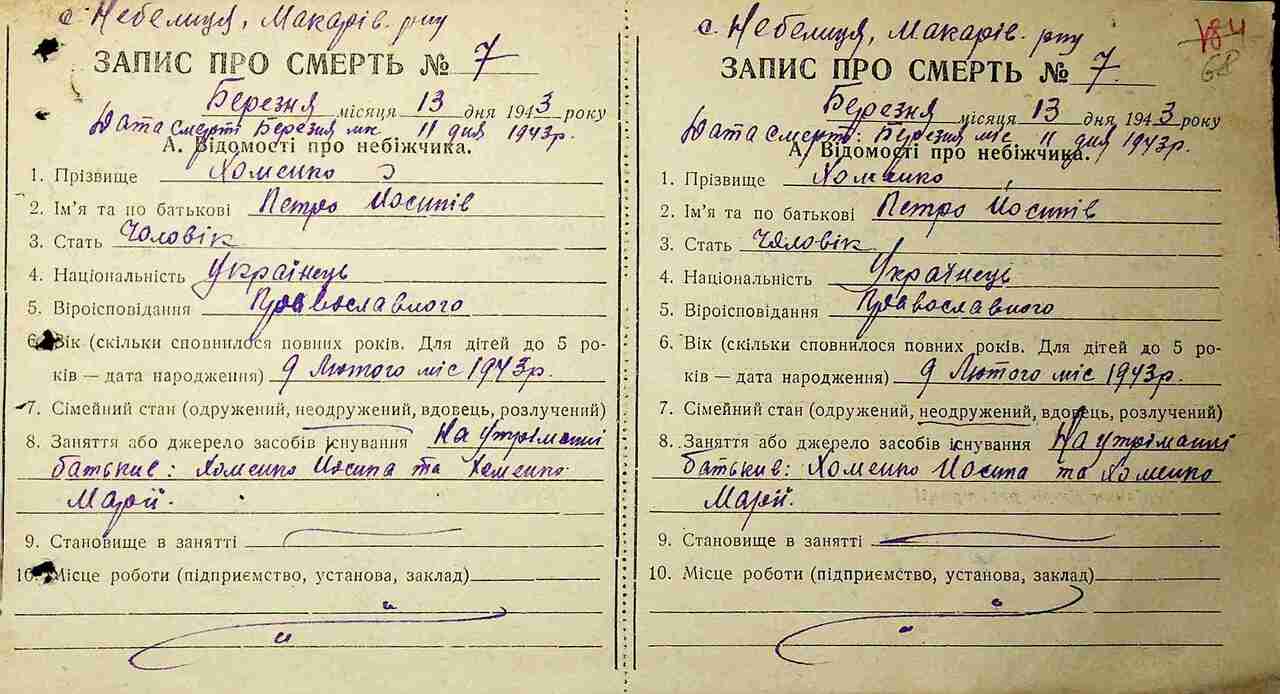 с. Небелиця, Макарів. р-ну
ЗАПИС ПРО СМЕРТЬ № 7
Березня місяця 13 дня 1943 року
Дата смерті Березня мк 11 дня 1943р.
А. Відомості про небіжчика.
1. Прізвище Хоменко
2. Ім'я та по батькові Петро Йосипів
3. Стать Чоловік
4. Національність Українець
5. Віроісповідання Православного
6. Вік (скільки сповнилося повних років. Для дітей до 5 ро-
ків — дата народження) 9 Лютого міс 1943р.
7. Сімейний стан (одружений, неодружений, вдовець, розлучений)
8. Заняття або джерело засобів існування На утріманні
батькив: Хоменко Йосипа та Хоменко
Марій.
9. Становище в занятті
10. Місце роботи (підприємство, установа, заклад)
с. Небелиця, Макарів. р-ну
184
68
ЗАПИС ПРО СМЕРТЬ № 7.
Березня місяця 13 дня 1943 року
Дата смерть: Березня міс 11 дня 1943р.
А. Відомості про небіжчика.
1. Прізвище Хоменко
2. Ім'я та по батькові Петро Йосипів
3. Стать Чяловік
4. Національність Українець
5. Віроісповідання Православного
6. Вік (скільки сповнилося повних років. Для дітей до 5 ро-
ків — дата народження) 9 Лютого міс 1943р.
7. Сімейний стан (одружений, неодружений, вдовець, розлучений)
8. Заняття або джерело засобів існування На утріманні
батькив: Хоменко Йосипа та Хоменко
Марій.
9. Становище в занятті
10. Місце роботи (підприємство, установа, заклад)